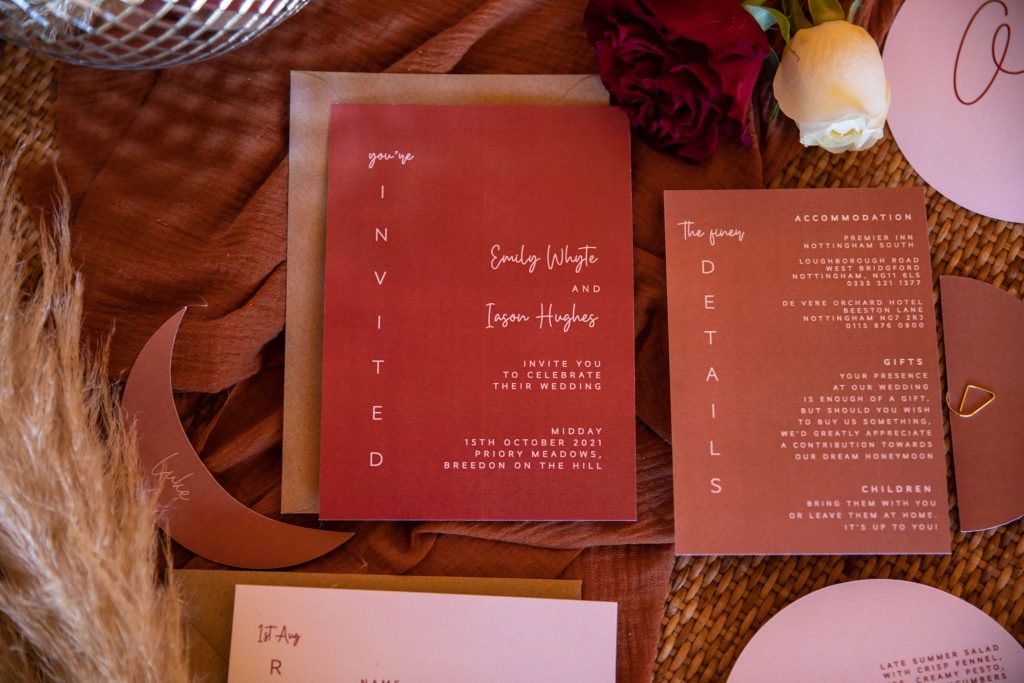 you're
INVITED
Emily Whyte
AND
Iason Hughes
INVITE YOU
TO CELEBRATE
THEIR WEDDING
MIDDAY
15TH OCTOBER 2021
PRIORY MEADOWS,
BREEDON ON THE HILL
The finer
DETAILS
ACCOMMODATION
PREMIER INN
NOTTINGHAM SOUTH
LOUGHBOROUGH ROAD
WEST BRIDGFORD
NOTTINGHAM, NG11 6LS
0333 321 1377
DE VERE ORCHARD HOTEL
BEESTON LANE
NOTTINGHAM NG7 2RJ
0115 876 0900
GIFTS
YOUR PRESENCE
AT OUR WEDDING
IS ENOUGH OF A GIFT,
BUT SHOULD YOU WISH
TO BUY US SOMETHING,
WE'D GREATLY APPRECIATE
A CONTRIBUTION TOWARDS
OUR DREAM HONEYMOON
CHILDREN
BRING THEM WITH YOU
OR LEAVE THEM AT HOME.
IT'S UP TO YOU!
Jake
1st Aug
R
NAME
LATE SUMMER SALAD
WITH CRISP FENNEL,
CREAMY PESTO,